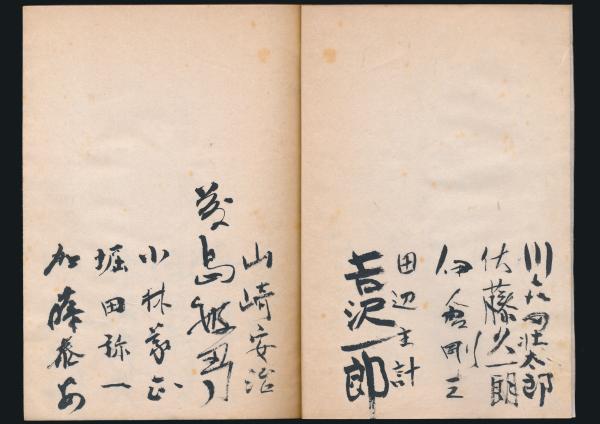 川
壮太郎
伏藤久一朗
倉剛三
田辺主計
吉沢一郎
山崎安治
島
小林義正
堀田弥一
加藤泰安